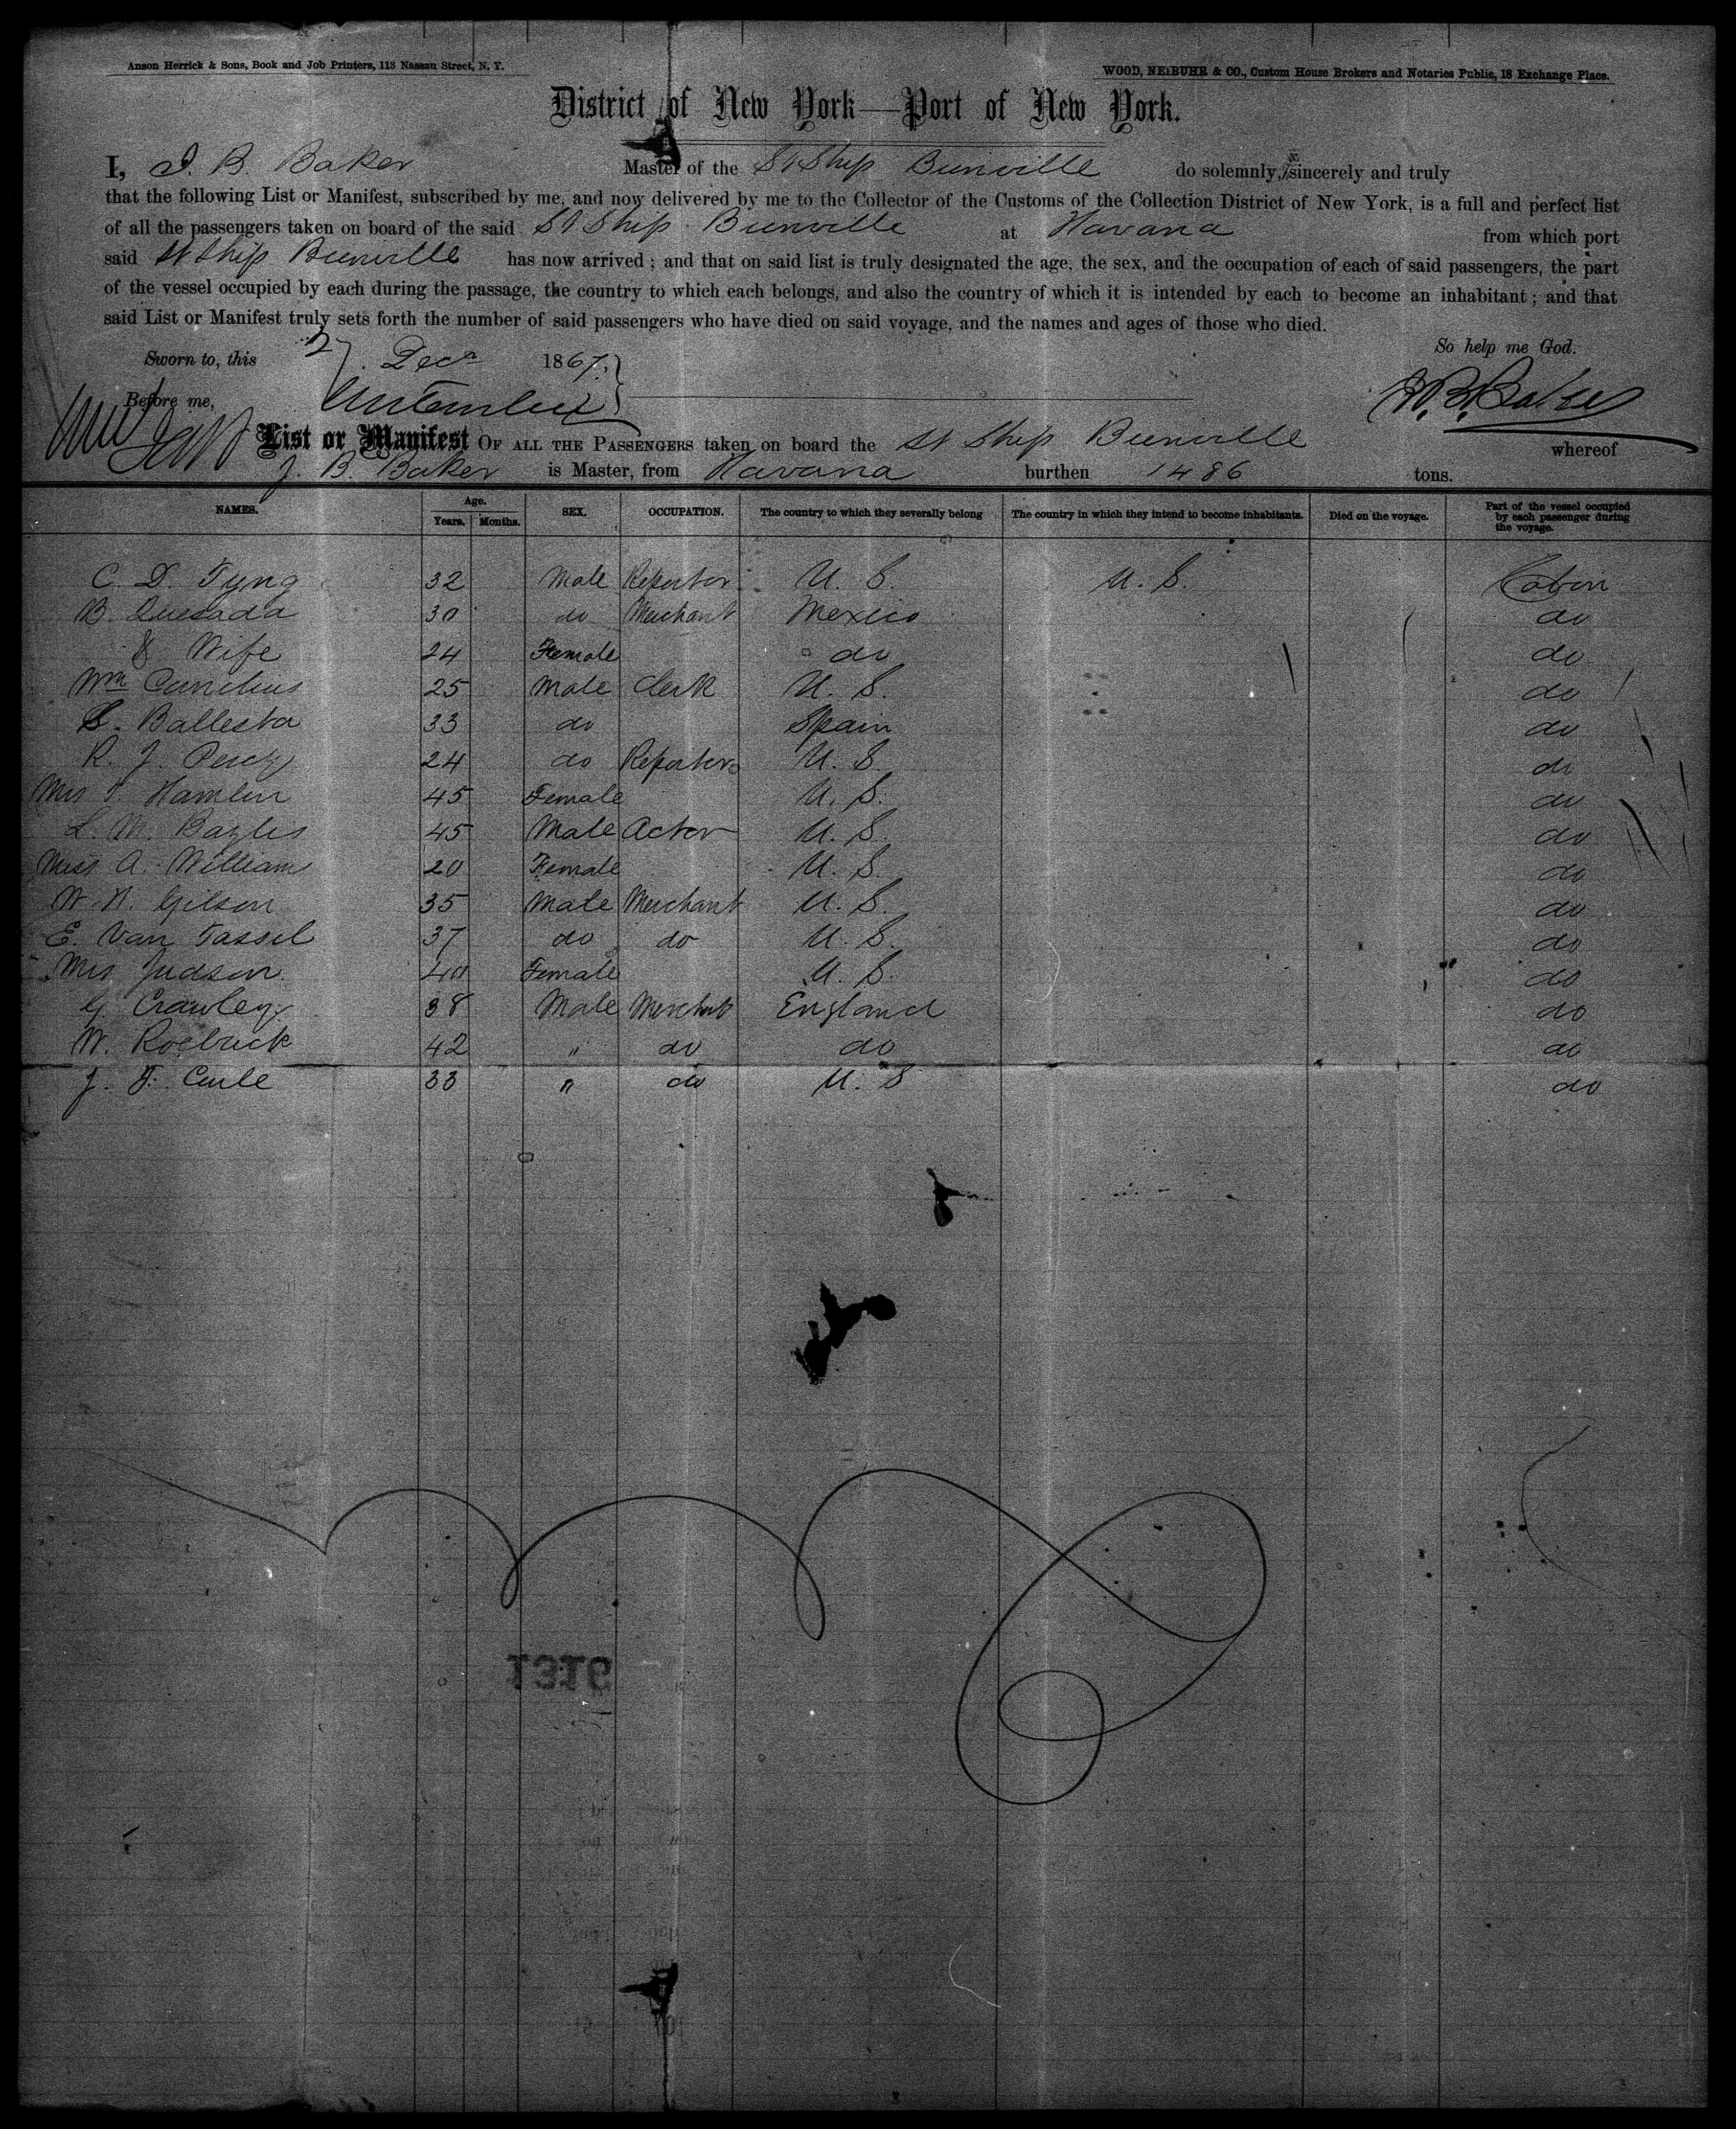 Anson Herrick & Sons, Book and Job Printers, 113 Nassau Street, N. Y.
WOOD, NEIBUHR & CO., Custom House Brokers and Notaries Public, 18 Exchange Place.
District of New York—Port of New York.
I, J. B. Baker Master of the St Ship Bienville do solemnly, sincerely and truly
that the following List or Manifest, subscribed by me, and now delivered by me to the Collector of the Customs of the Collection District of New York, is a full and perfect list
of all the passengers taken on board of the said St Ship Bienville at Havana from which port
said St Ship Bienville has now arrived; and that on said list is truly designated the age, the sex, and the occupation of each of said passengers, the part
of the vessel occupied by each during the passage, the country to which each belongs, and also the country of which it is intended by each to become an inhabitant; and that
said List or Manifest truly sets forth the number of said passengers who have died on said voyage, and the names and ages of those who died.
So help me God.
Sworn to, this 27 Dec 1867.
Before me,
J. B. Baker
List or Manifest OF ALL THE PASSENGERS taken on board the St Ship Bienville whereof
J. B. Baker is Master, from Havana burthen 1486 tons.
NAMES. Age. Years. Months. SEX. OCCUPATION. The country to which they severally belong The country in which they intend to become inhabitants. Died on the voyage. Part of the vessel occupied by each passenger during the voyage.
C. D. Tyng 32 Male Reporter U. S. U. S. Cabin
B. Quesada 30 do Merchant Mexico do
& Wife 24 Female do do
Wm Cornelius 25 Male Clerk U. S. do
Ballesta 33 do Spain do
R. J. 24 do Reporter U. S. do
Mrs Hamlin 45 Female U. S. do
L. M. Bayles 45 Male Actor U. S. do
Miss A. William 20 Female U. S. do
W. H. Gilson 35 Male Merchant U. S. do
E. Van Tassel 37 do do U. S. do
Mrs Judson 40 Female U. S. do
G Crawley 38 Male Merchant England do
W. Roebuck 42 " do do do
J. F. Carle 33 " do U. S do
1316